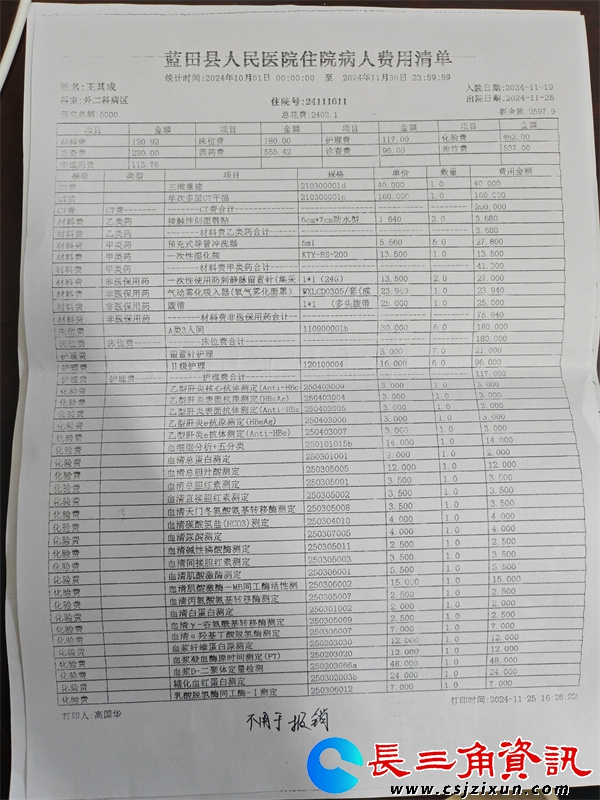 蓝田县人民医院住院病人费用清单
统计时间:2024年10月01日 00:00:00 至 2024年11月30日 23:59:59
姓名:王其成 入院日期:2024-11-19
科室:外二科病区 住院号:24111611 出院日期:2024-11-25
预交总额:5000 总花费:2402.1 剩余额:2597.9
项目 金额 项目 金额 项目 金额 项目 金额
材料费 120.92 床位费 180.00 护理费 117.00 化验费 462.00
检查费 220.00 西药费 555.42 诊查费 96.00 治疗费 537.00
中成药费 113.76
类型 项目 规格 单价 数量 费用金额
CT费 三维重建 210300001d 40.000 1.0 40.000
CT费 单次多层CT平扫 210300001c 160.000 1.0 160.000
CT费 CT费------- -------CT费合计------- 200.000
材料费 乙类药 接触性创面敷贴 6cm*7cm防水型 1.840 2.0 3.680
材料费 乙类药 -------材料费乙类药合计---- 3.680
材料费 甲类药 预充式导管冲洗器 5ml 5.560 5.0 27.800
材料费 甲类药 一次性湿化瓶 KTY-BS-200 13.500 1.0 13.500
材料费 甲类药 -------材料费甲类药合计---- 41.300
材料费 非医保用药 一次性使用防刺静脉留置针(集采 1*1（24G） 13.500 2.0 27.000
材料费 非医保用药 气动雾化吸入器(氧气雾化面罩) WXLCD0305/套(成 23.940 1.0 23.940
材料费 非医保用药 腹带 1*1 （多头腹带 25.000 1.0 25.000
材料费 非医保用药 -------材料费非医保用药合计---- 75.940
床位费 A类3人间 110900001b 30.000 6.0 180.000
床位费 床位费------- -------床位费合计------- 180.000
护理费 留置针护理 3.000 7.0 21.000
护理费 Ⅱ级护理 120100004 16.000 6.0 96.000
护理费 护理费------- -------护理费合计------- 117.000
化验费 乙型肝炎核心抗体测定(Anti-HBc 250403009 3.000 1.0 3.000
化验费 乙型肝炎表面抗原测定(HBsAg) 250403004 3.000 1.0 3.000
化验费 乙型肝炎表面抗体测定(Anti-HB 250403005 3.000 1.0 3.000
化验费 乙型肝炎e抗原测定(HBeAg) 250403006 3.000 1.0 3.000
化验费 乙型肝炎e抗体测定(Anti-HBe) 250403007 3.000 1.0 3.000
化验费 血细胞分析+五分类 250101015b 14.000 1.0 14.000
化验费 血清总蛋白测定 250301001 1.0 2.000
化验费 血清总胆汁酸测定 250305005 12.000 1.0 12.000
化验费 血清总胆红素测定 250305001 3.500 1.0 3.500
化验费 血清直接胆红素测定 250305002 3.500 1.0 3.500
化验费 血清天门冬氨酸氨基转移酶测定 250305008 3.500 1.0 3.500
化验费 血清碳酸氢盐(HCO3)测定 250304010 4.000 1.0 4.000
化验费 血清尿酸测定 250307005 4.000 1.0 4.000
化验费 血清碱性磷酸酶测定 250305011 2.500 1.0 2.500
化验费 血清间接胆红素测定 250305003 3.500 1.0 3.500
化验费 血清肌酸激酶测定 250306001 5.500 1.0 5.500
化验费 血清肌酸激酶-MB同工酶活性测 250306002 15.000 1.0 15.000
化验费 血清丙氨酸氨基转移酶测定 250305007 2.500 1.0 2.500
化验费 血清白蛋白测定 250301002 2.000 1.0 2.000
化验费 血清γ-谷氨酰基转移酶测定 250305009 2.500 1.0 2.500
化验费 血清α羟基丁酸脱氢酶测定 250306007 7.000 1.0 7.000
化验费 血浆纤维蛋白原测定 250203030 12.000 1.0 12.000
化验费 血浆凝血酶原时间测定(PT) 250203020 12.000 1.0 12.000
化验费 血浆D-二聚体定量检测 250203066a 48.000 1.0 48.000
化验费 糖化血红蛋白测定 250302003b 24.000 1.0 24.000
化验费 乳酸脱氢酶同工酶-Ⅰ测定 250306012 7.000 1.0 7.000
打印人 高国华 打印时间:2024-11-25 16:25:22
不用于报销
長三角資訊
www.csjzixun.com